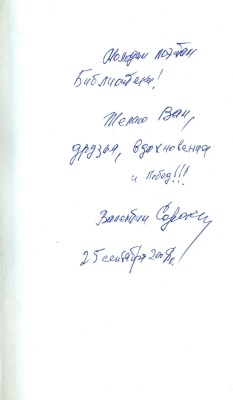 Молодым поэтам
Библиотеки!
Желаю Вам,
друзья, вдохновения
и побед!!!
Валентин Сорокин
25 сентября 2008г.